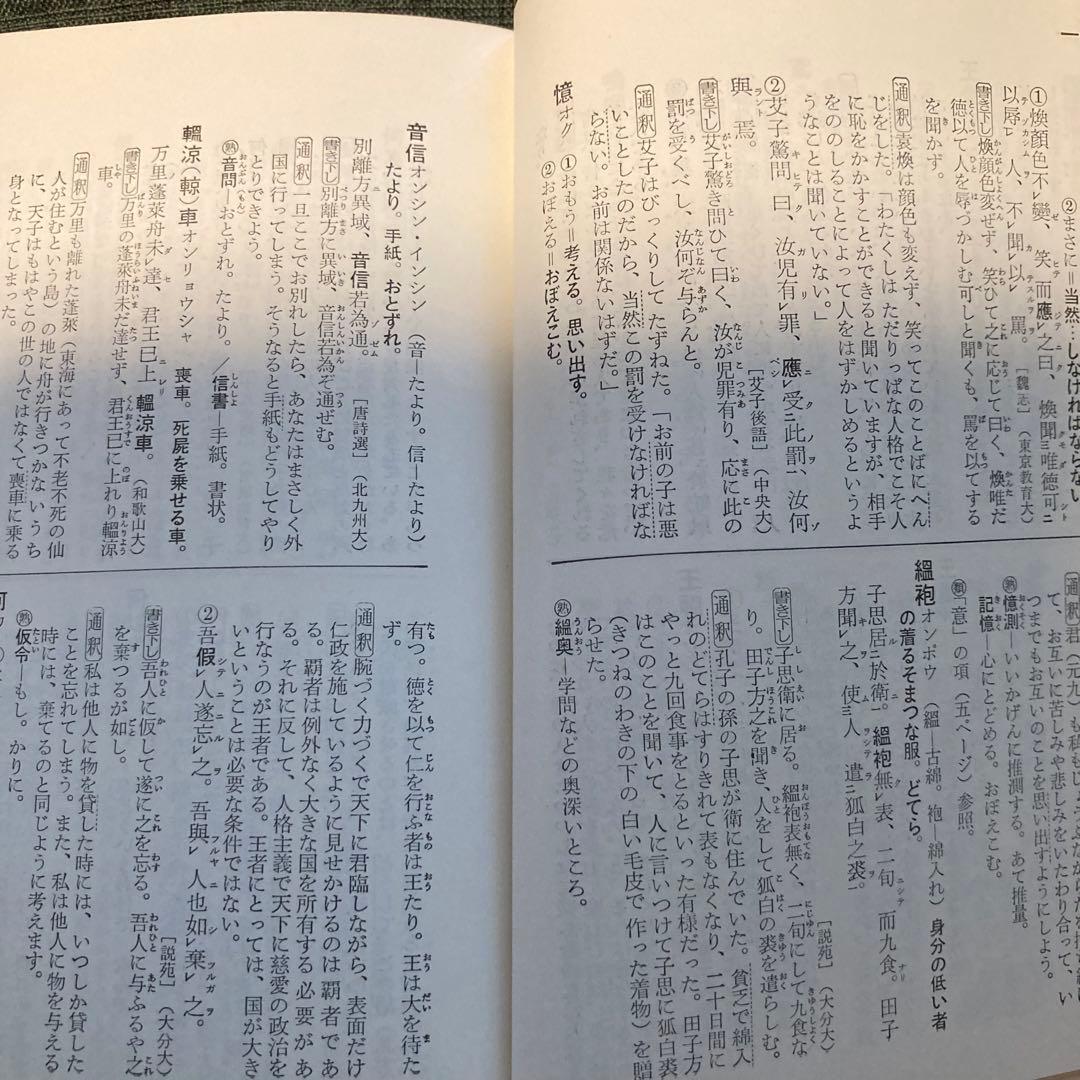 ②まさに＝当然…しなければならない
①煥顔色不レ變、笑而應レ之曰、煥聞三唯徳可二
以辱レ人、不レ聞レ以レ罵。［魏志］（東京教育大）
書き下し 煥顔色変ぜず、笑ひて之に応じて曰く、煥唯だ
徳以て人を辱つかしむ可しと聞くも、罵を以てする
を聞かず。
通釈 袁煥は顔色も変えず、笑ってこのことばにへん
じをした。「わたくしはただりっぱな人格でこそ人
に恥をかかすことができると聞いていますが、相手
をののしることによって人をはずかしめるというよ
うなことは聞いていない。」
②艾子驚問曰、汝児有レ罪、應レ受二此罰一、汝何
與焉。［艾子後語］（中央大）
書き下し 艾子驚き問ひて曰く、汝が児罪有り、応に此の
罰を受くべし、汝何ぞ与らんと。
通釈 艾子はびっくりしてたずねた。「お前の子は悪
いことしたのだから、当然この罰を受けなければな
らない。お前は関係ないはずだ。」
憶オク ①おもう＝考える。思い出す。
②おぼえる＝おぼえこむ。
つまでもお互いのことを思い出すようにしよう。
て、お互いに苦しみや悲しみをいたわり合って、い
熟憶測―いいかげんに推測する。あて推量。
記憶―心にとどめる。おぼえこむ。
類「意」の項（五ページ）参照。
縕袍オンボウ（縕―古綿。袍―綿入れ）身分の低い者
の着るそまつな服。どてら。
子思居二於衛一。縕袍無レ表、二旬而九食。田子
方聞レ之、使三人遺二狐白之裘一。［説苑］（大分大）
書き下し 子思衛に居る。縕袍表無く、二旬にして九食な
り。田子方之を聞き、人をして狐白の裘を遺らしむ。
通釈 孔子の孫の子思が衛に住んでいた。貧乏で綿入
れのどてらはすりきれて表もなくなり、二十日間に
やっと九回食事をとるといった有様だった。田子方
はこのことを聞いて、人に言いつけて子思に狐白裘
（きつねのわきの下の白い毛皮で作った着物）を贈
らせた。
熟縕奥―学問などの奥深いところ。
音信オンシン・インシン（音―たより。信―たより）
たより。手紙。おとずれ。
別離方異域、音信若為通。［唐詩選］（北九州大）
書き下し 別離方に異域、音信若為ぞ通ぜむ。
通釈 一旦ここでお別れしたら、あなたはまさしく外
国に行ってしまう。そうなると手紙もどうしてやり
とりできよう。
熟音問―おとずれ。たより。／信書―手紙。書状。
轀涼（輬）車オンリョウシャ 喪車。死屍を乗せる車。
万里蓬萊舟未レ達、君王已上轀涼車。（和歌山大）
書き下し 万里の蓬萊舟未だ達せず、君王已に上れり轀涼
車。
通釈 万里も離れた蓬萊（東海にあって不老不死の仙
人が住むという島）の地に舟が行きつかないうち
に、天子はもはやこの世の人ではなくて喪車に乗る
身となってしまった。
有つ。徳を以て仁を行ふ者は王たり。王は大を待た
ず。
通釈 腕づく力づくで天下に君臨しながら、表面だけ
仁政を施しているように見せかけるのは覇者であ
る。覇者は例外なく大きな国を所有する必要があ
る。それに反して、人格主義で天下に慈愛の政治を
行なうのが王者である。王者にとっては、国が大き
いということは必要な条件ではない。
②吾假レ人遂忘レ之。吾與レ人也如レ棄レ之。
［説苑］（大分大）
書き下し 吾人に仮して遂に之を忘る。吾人に与ふるや之
を棄つるが如し。
通釈 私は他人に物を貸した時には、いつしか貸した
ことを忘れてしまう。また、私は他人に物を与える
時には、棄てるのと同じように考えます。
熟仮令―もし。かりに。